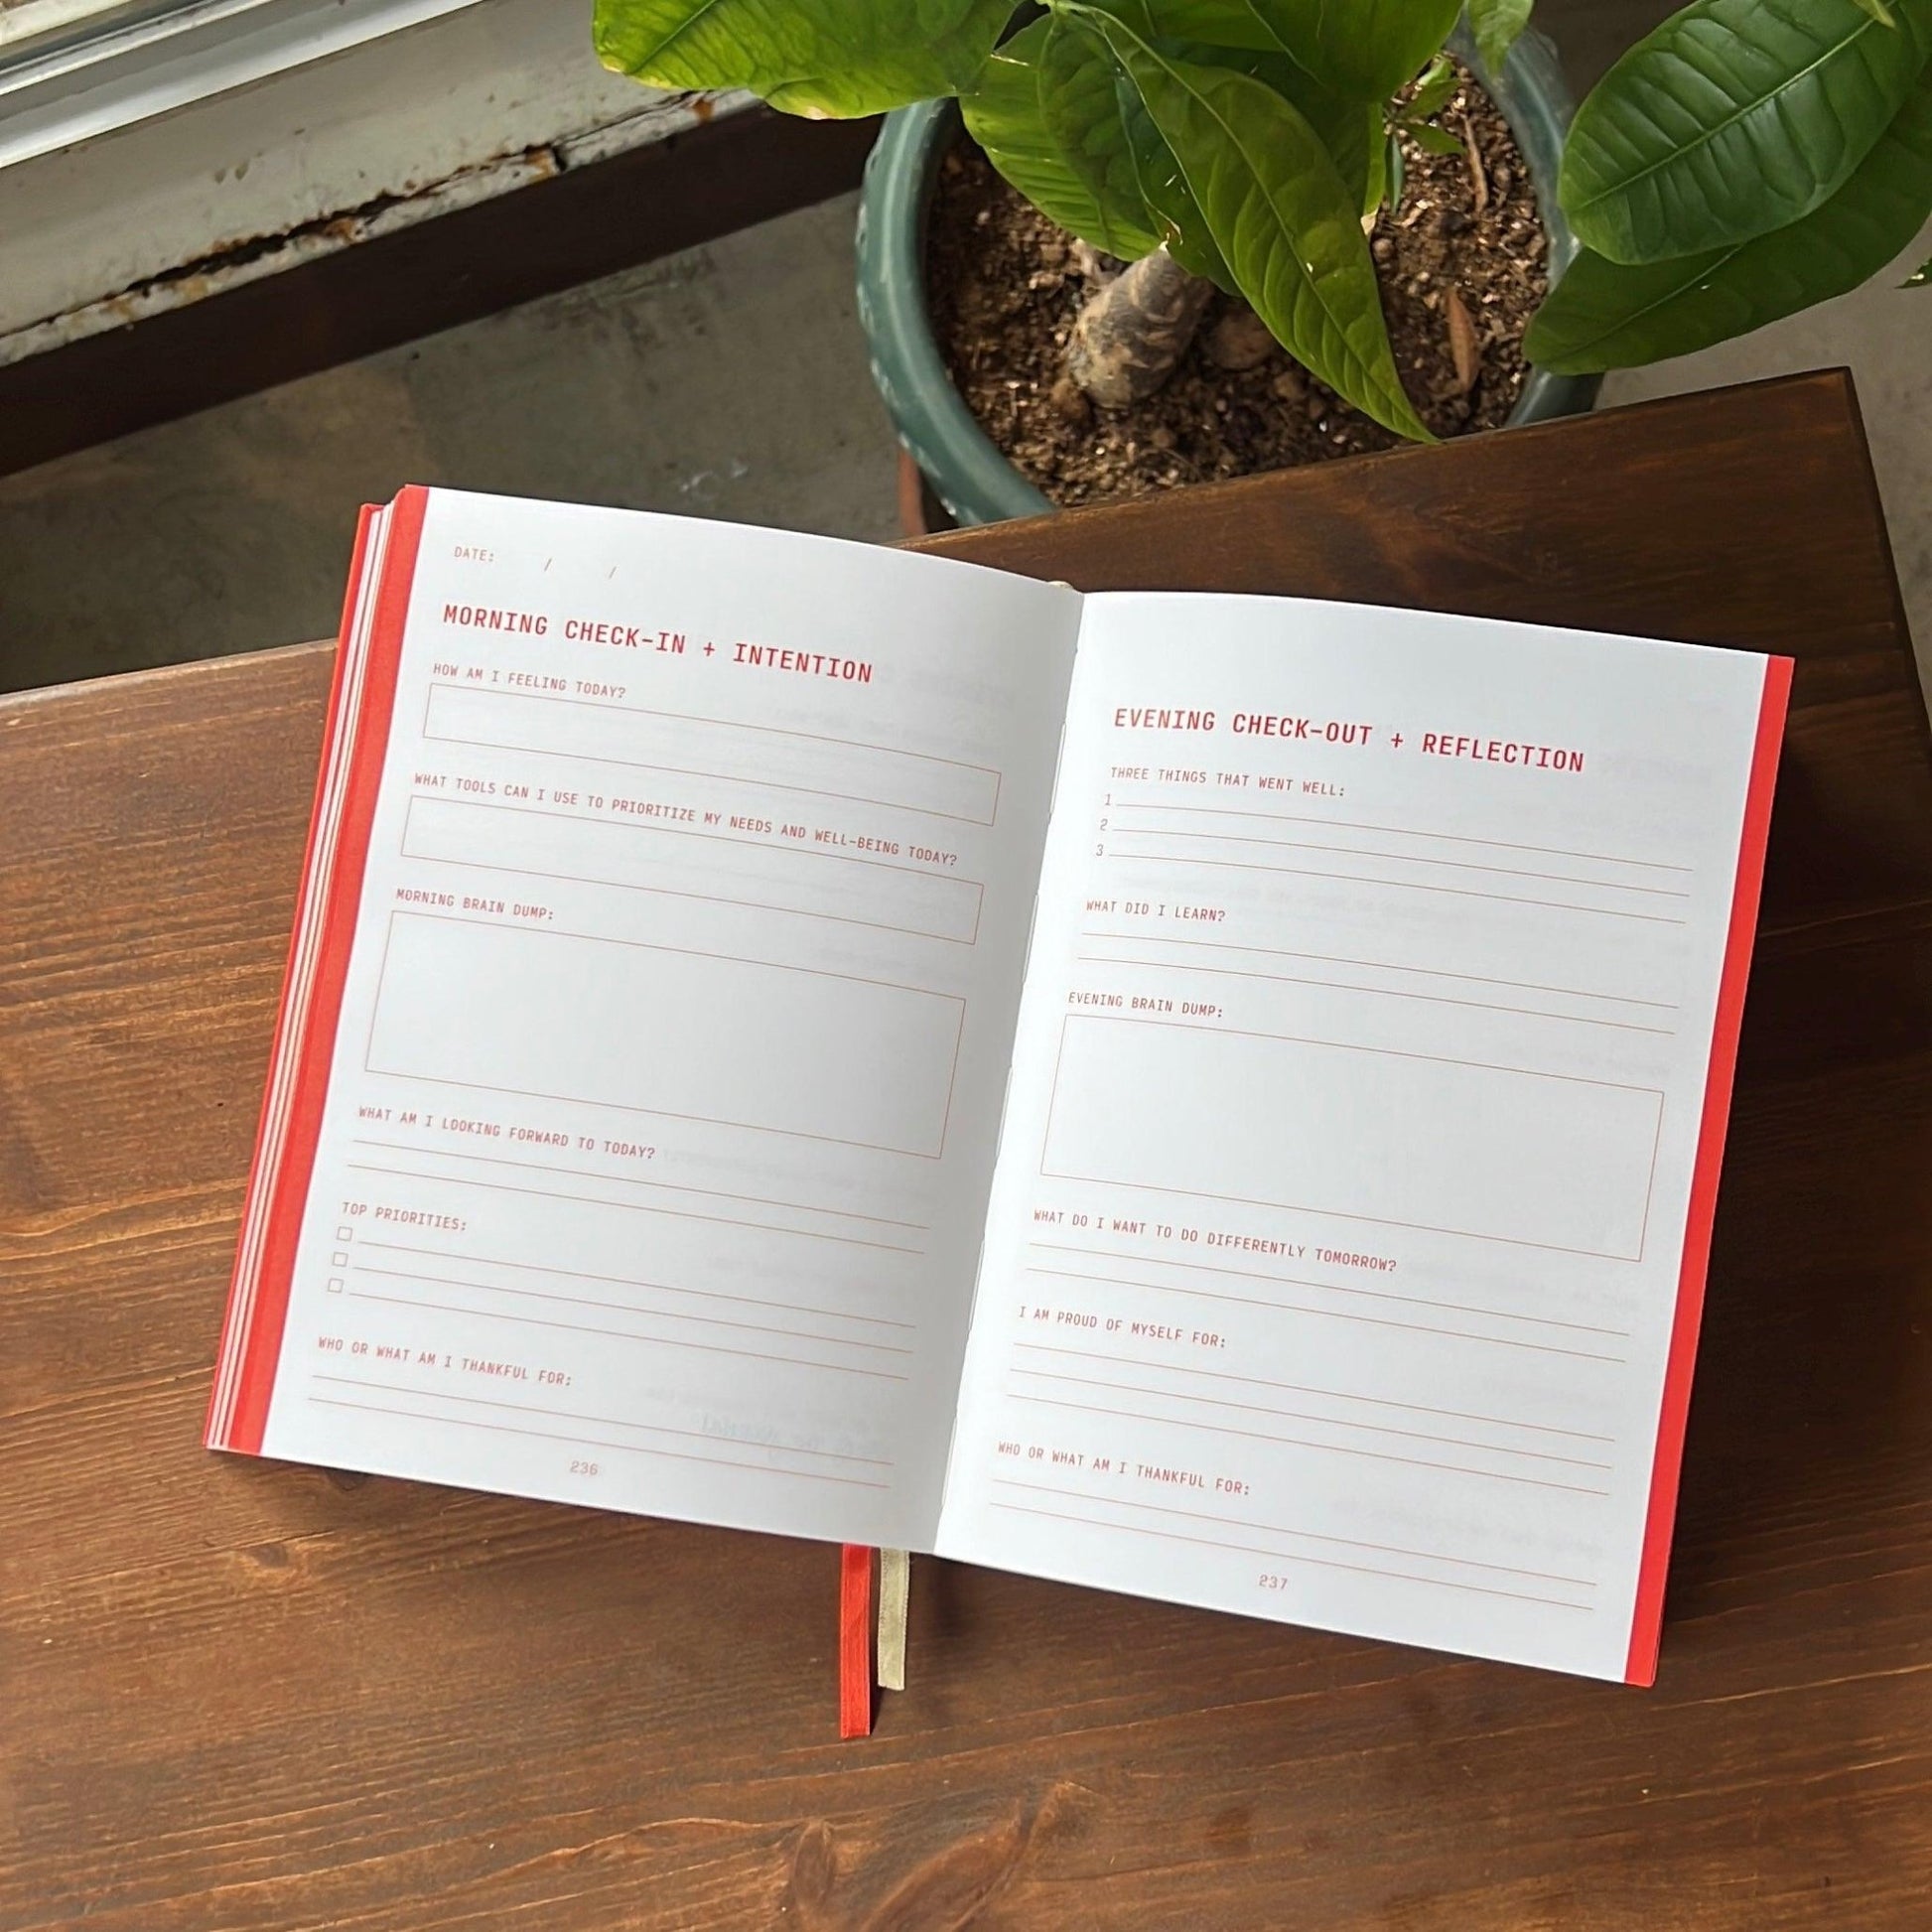 DATE: / /
MORNING CHECK-IN + INTENTION
HOW AM I FEELING TODAY?
WHAT TOOLS CAN I USE TO PRIORITIZE MY NEEDS AND WELL-BEING TODAY?
MORNING BRAIN DUMP:
WHAT AM I LOOKING FORWARD TO TODAY?
TOP PRIORITIES:
WHO OR WHAT AM I THANKFUL FOR:
236
EVENING CHECK-OUT + REFLECTION
THREE THINGS THAT WENT WELL:
1
2
3
WHAT DID I LEARN?
EVENING BRAIN DUMP:
WHAT DO I WANT TO DO DIFFERENTLY TOMORROW?
I AM PROUD OF MYSELF FOR:
WHO OR WHAT AM I THANKFUL FOR:
237